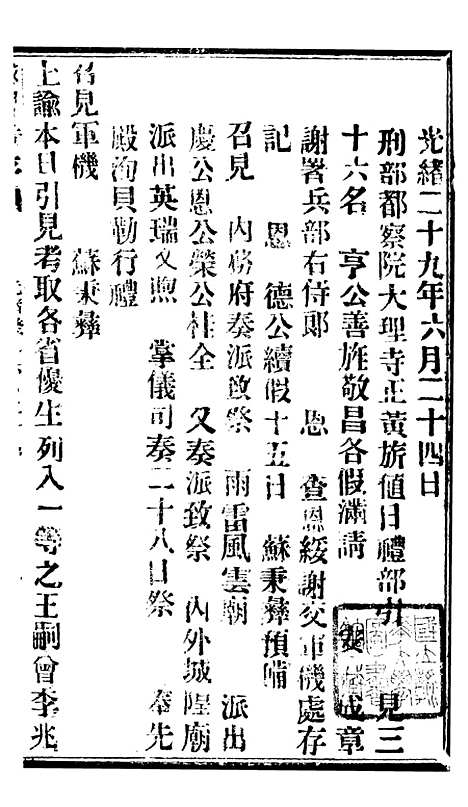 光緒二十九年六月二十四日
刑部都察院大理寺正黃旂值日禮部引 見三
十六名 亨公善旂敬昌各假滿請 安 成章
謝署兵部右侍郎 恩 查恩綬謝交軍機處存
記 恩 德公續假十五日 蘇秉彝預備
召見 內務府奏派致祭 雨雷風雲廟 派出
慶公恩公榮公桂全 又奏派致祭 內外城隍廟
派出英瑞文煦 掌儀司奏二十八日祭 奉先
殿洵貝勒行禮
召見軍機 蘇秉彝
上諭本日引見考取各省優生列入一等之王嗣曾李兆